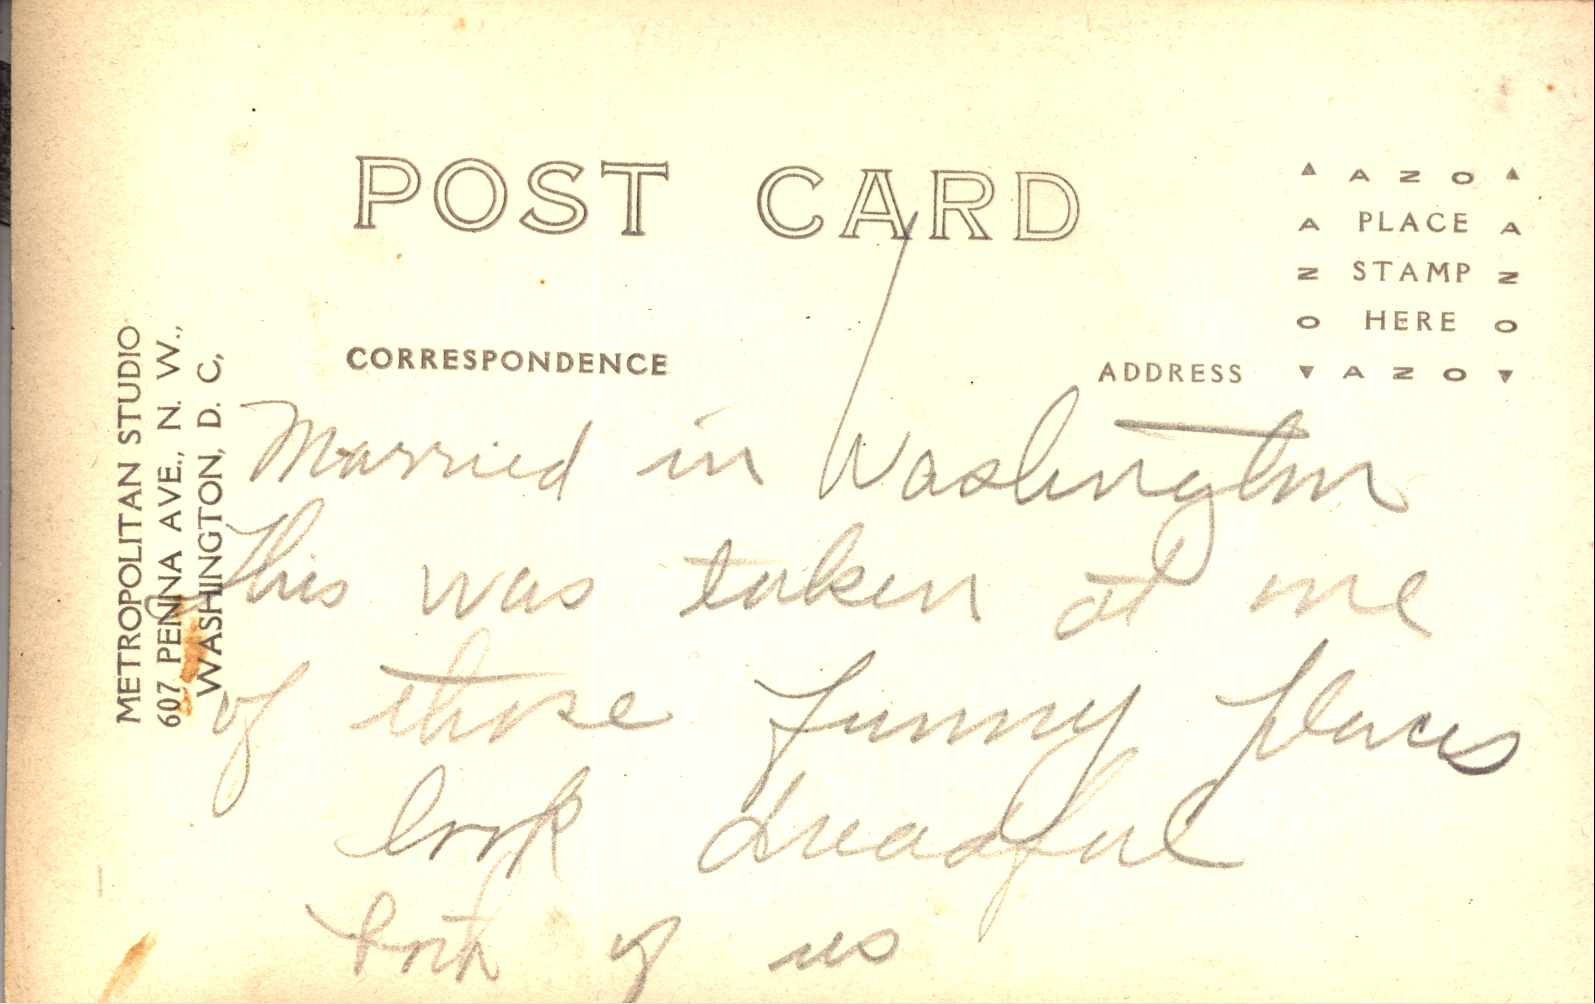 POST CARD
▲ A Z O ▲
A PLACE A
Z STAMP Z
O HERE O
▼ A Z O ▼
CORRESPONDENCE
ADDRESS
METROPOLITAN STUDIO
607 PENNA AVE., N. W.,
WASHINGTON, D. C,
Married in Washington
This was taken at one
of those funny places
look dreadful
both of us